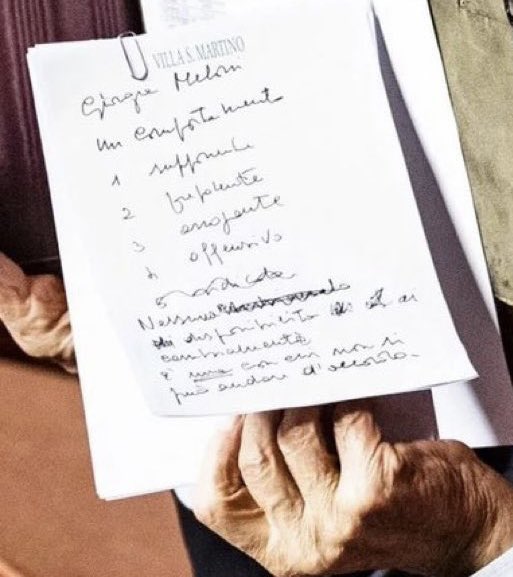 VILLA S. MARTINO
Giorgia Meloni
Un comportamento
1 supponente
2 prepotente
3 arrogante
4 offensivo
5
Nessuna
disponibilità ai
cambiamenti
È una con cui non si
può andare d'accordo.